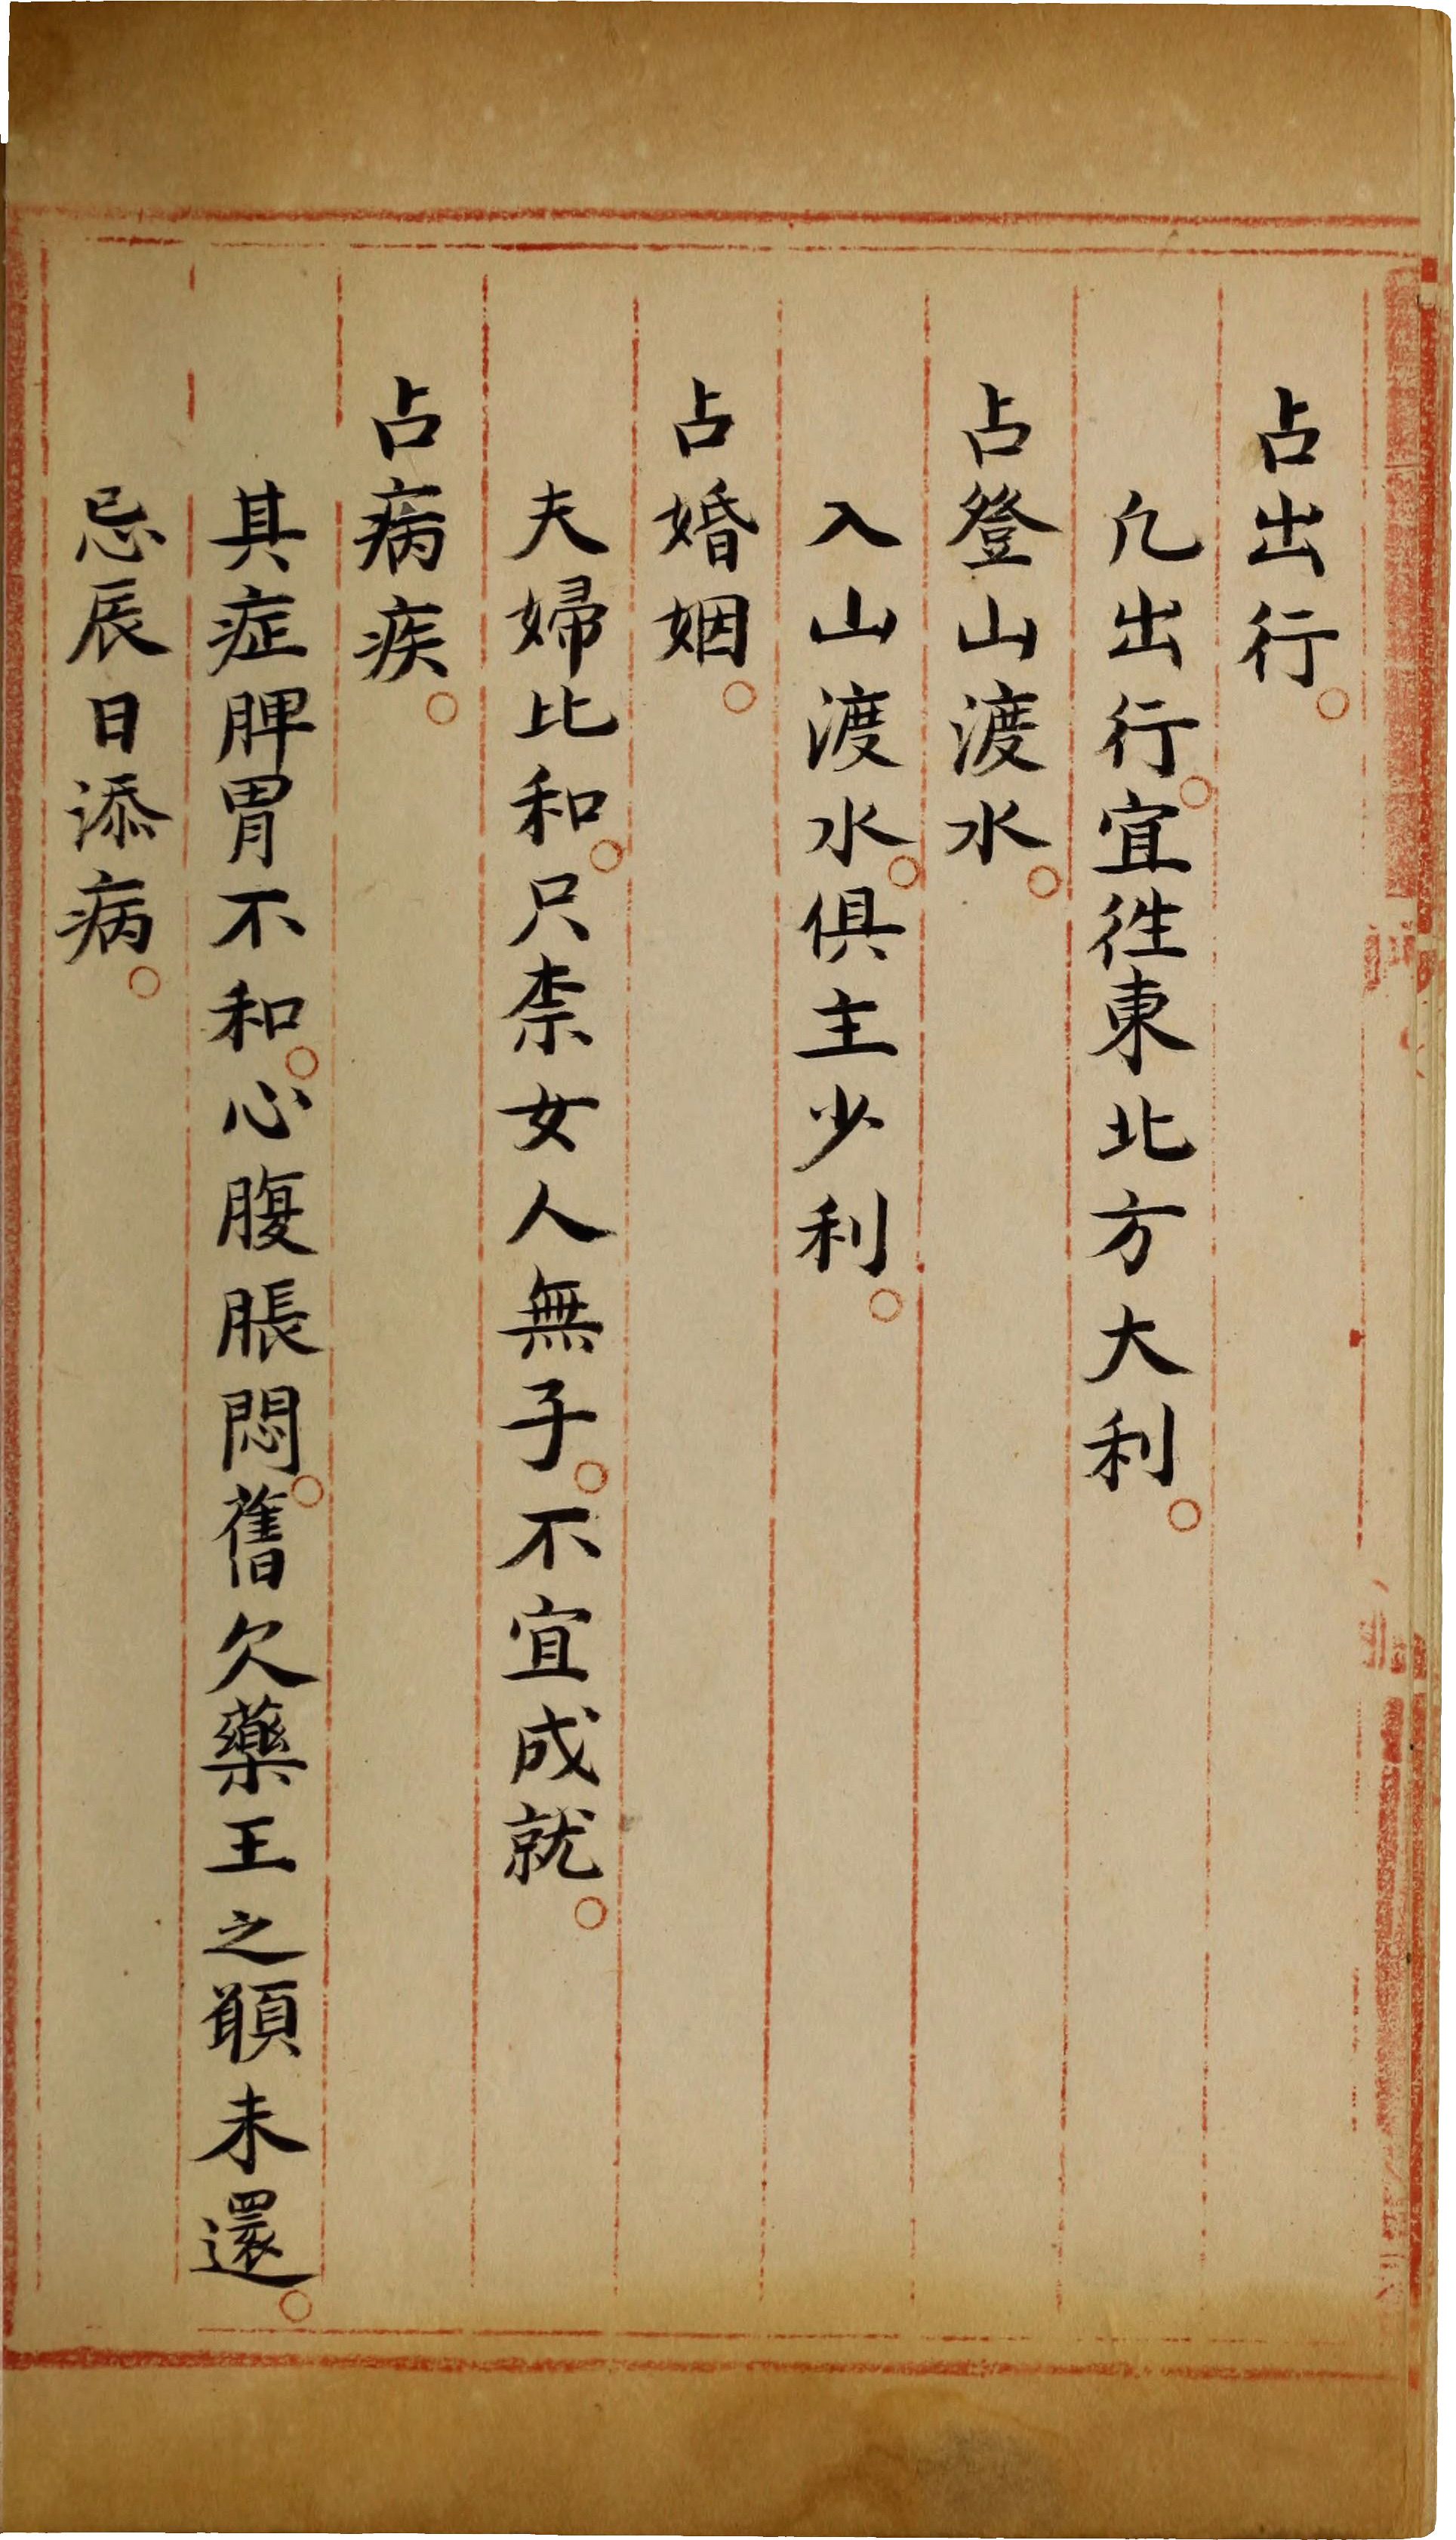 占出行。
凢出行。宜徃東北方大利。
占登山渡水。
入山渡水。俱主少利。
占婚姻。
夫婦比和。只柰女人無子。不宜成就。
占病疾。
其症脾胃不和。心腹脹悶。舊欠藥王之願未還。
忌辰日添病。